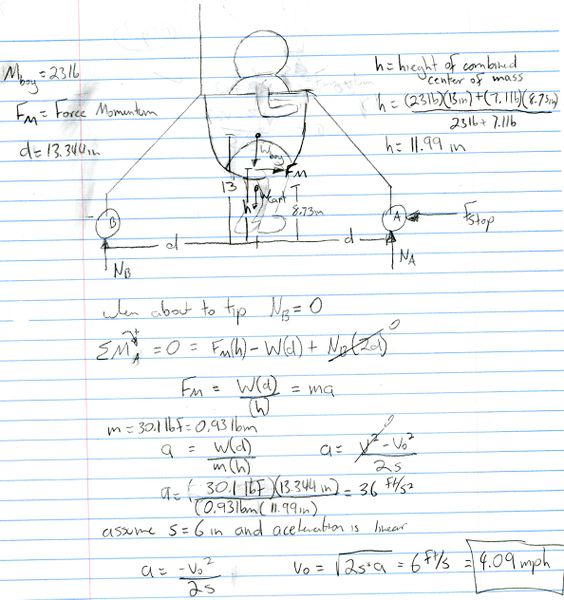 M_boy = 23lb
F_M = Force Momentum
d = 13.344in
h = hieght of combined
center of mass
h = (23lb)(13in)+(7.1lb)(8.73in)
23lb + 7.1lb
h = 11.99 in
W_boy
F_M
13
h
W_cart
8.73in
B
A
F_stop
d
d
N_B
N_A
when about to tip N_B = 0
ΣM_A = 0 = F_M(h) - W(d) + N_B(2d) 0
F_M = W(d)/(h) = ma
m = 30.1 lbf = 0.93 lbm
a = W(d)/m(h)
a = V² - V₀²/2s 0
a = (30.1 lbf)(13.344 in)/(0.93lbm(11.99in) = 36 ft/s²
assume s = 6 in and aceleration is linear
a = -V₀²/2s
V₀ = √2s*a = 6 ft/s = 4.09 mph